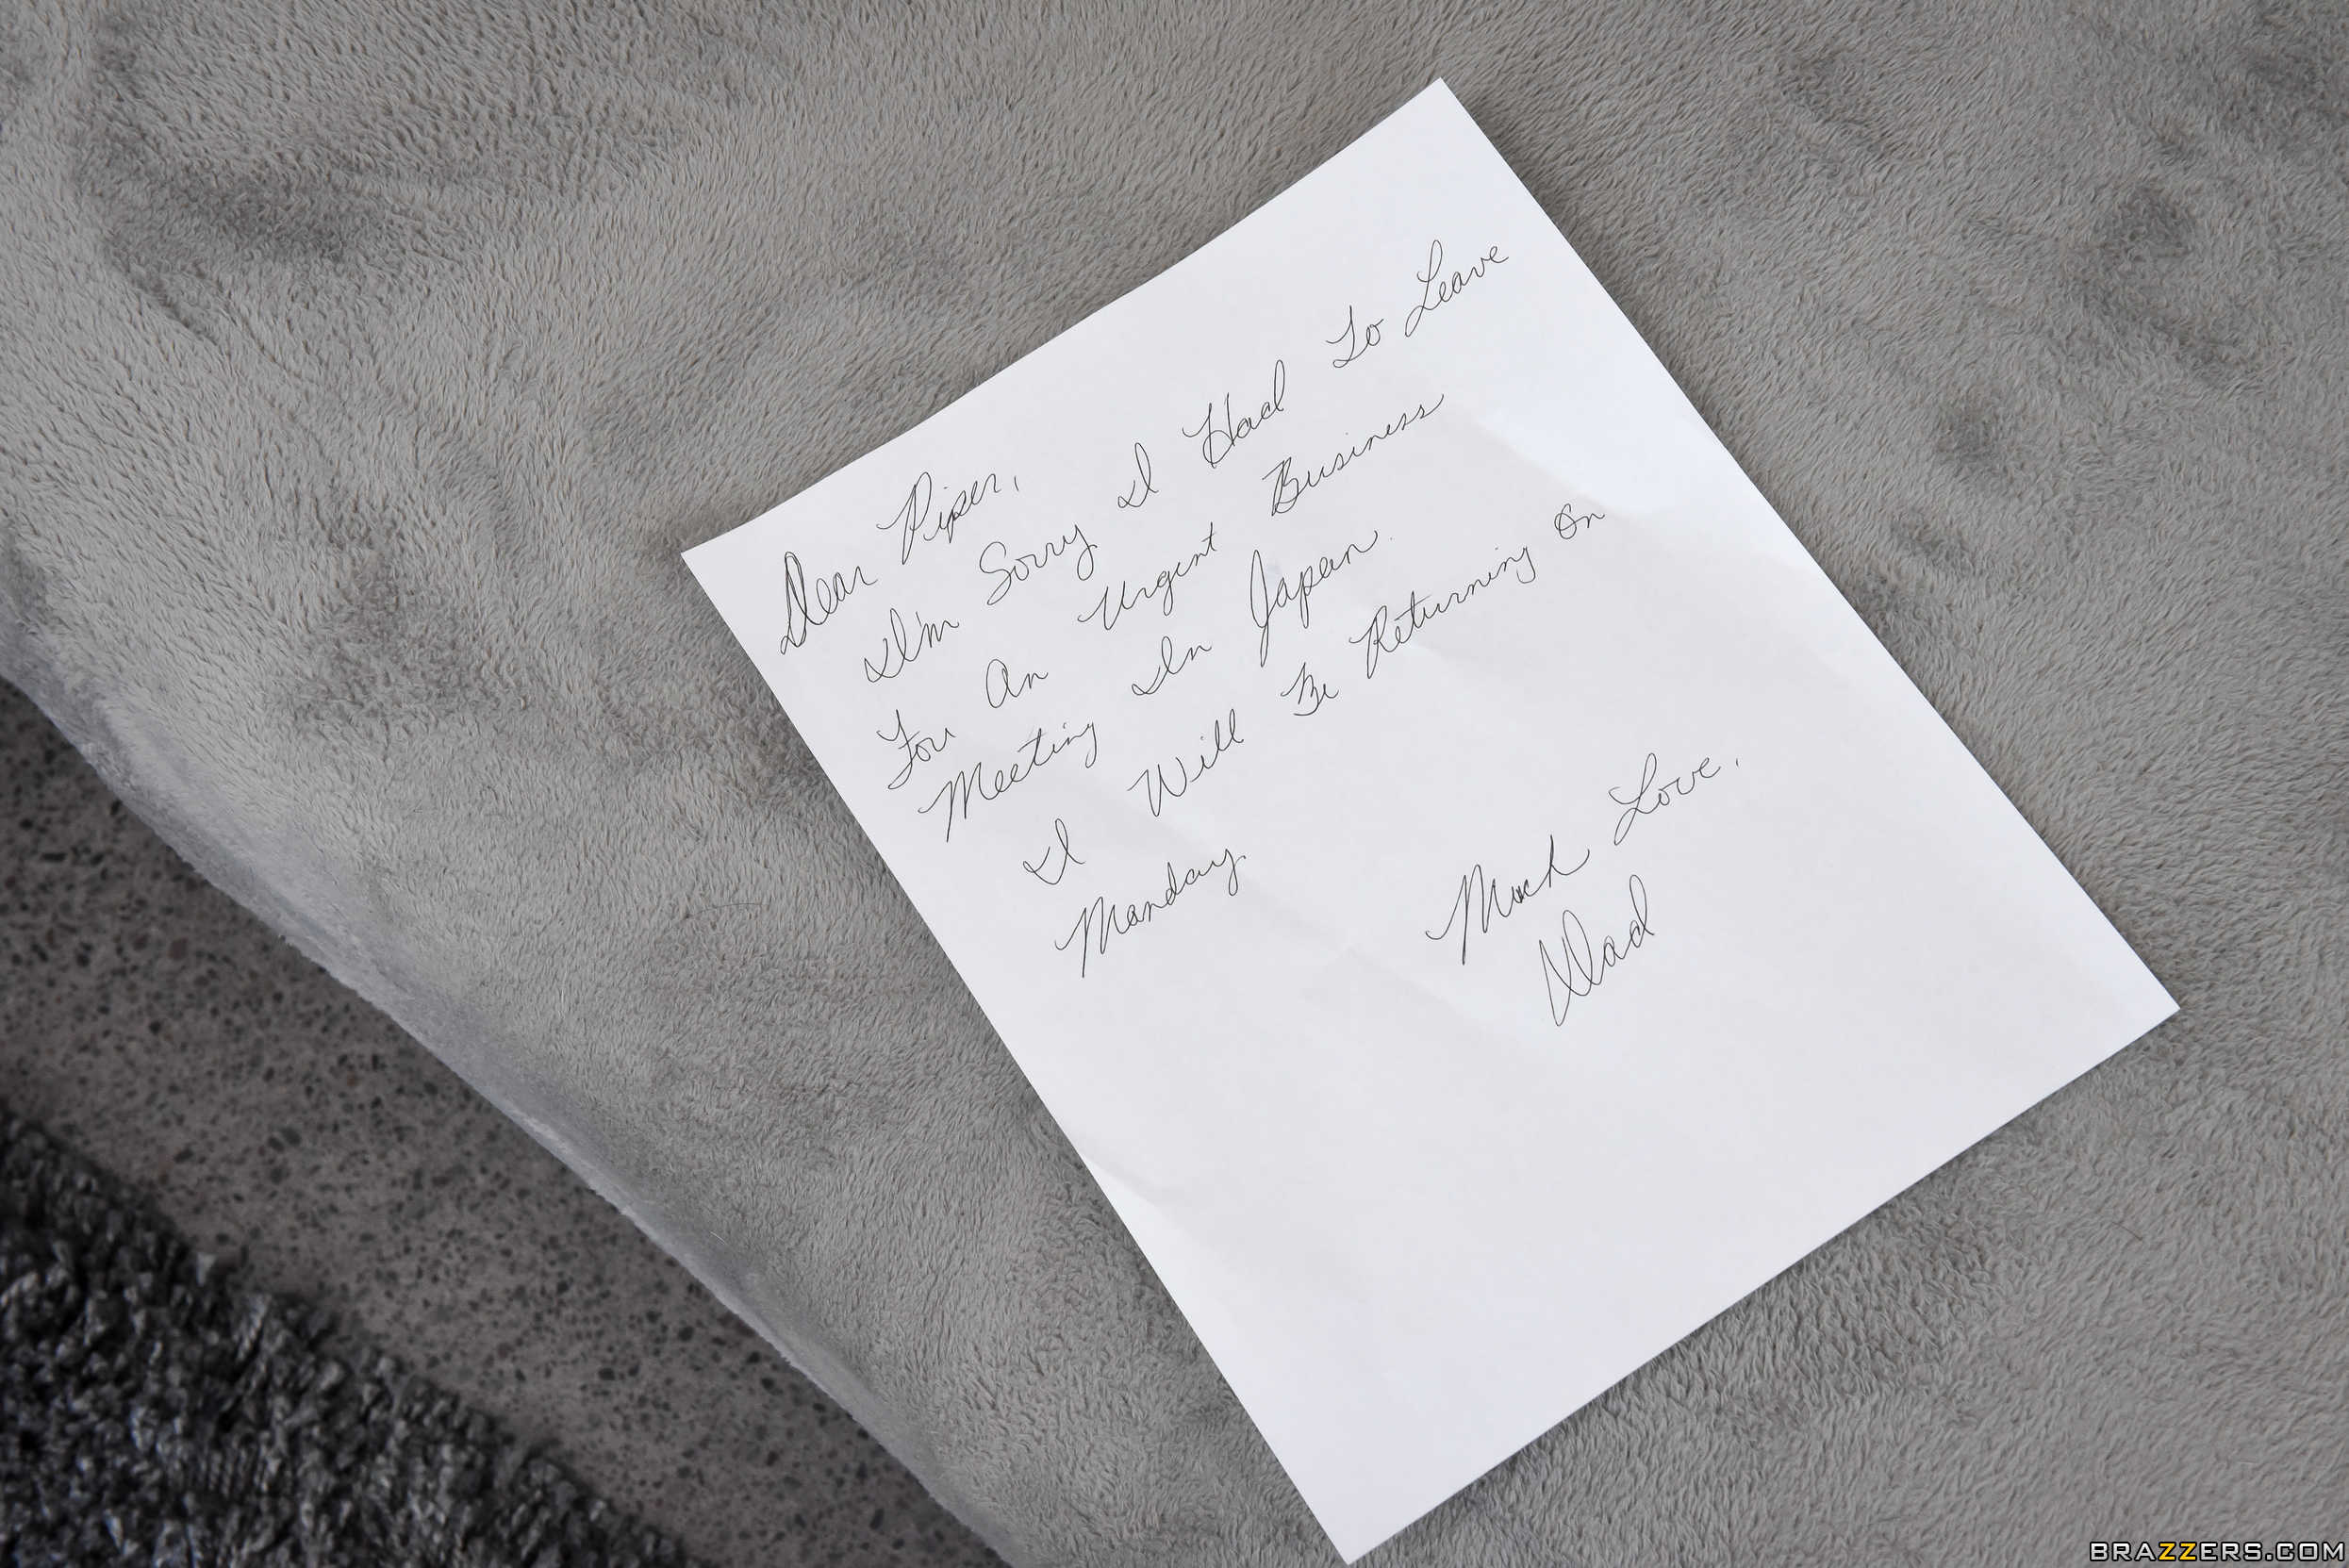 Dear Piper,
I'm Sorry I Had To Leave
For An Urgent Business
Meeting In Japan.
I Will Be Returning On
Monday
Much Love,
Dad
BRAZZERS.COM